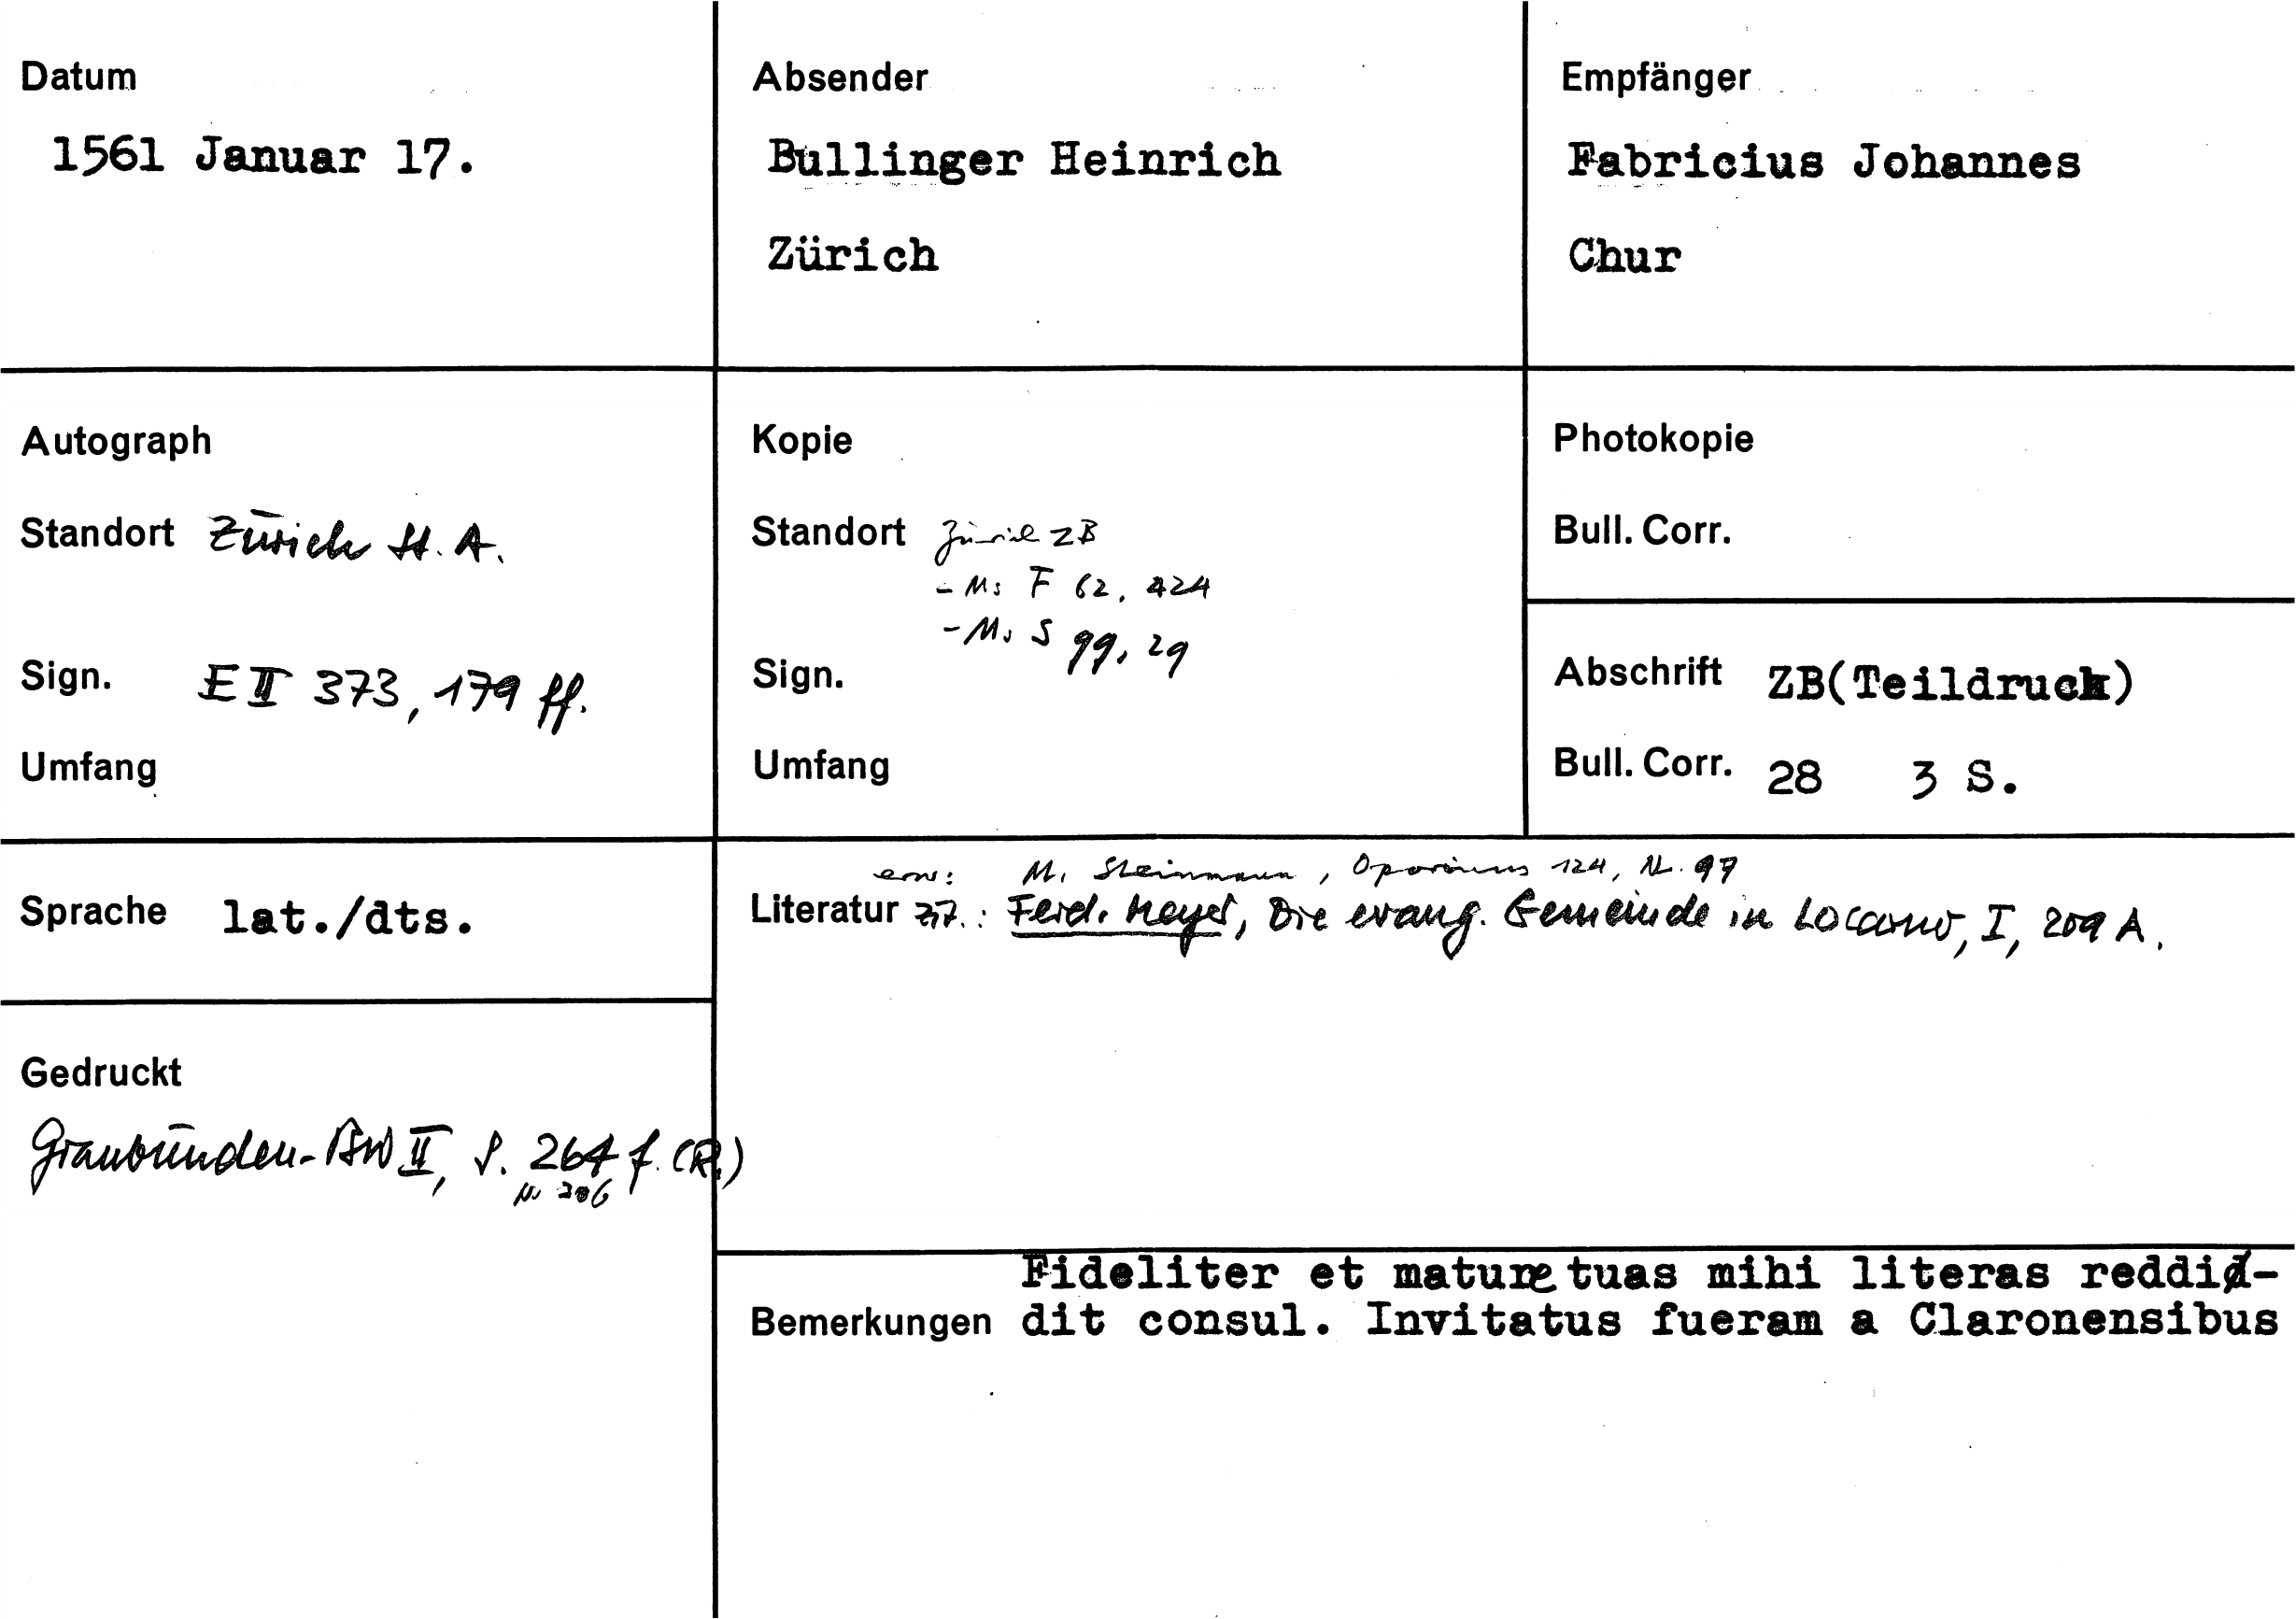 Datum
1561 Januar 17.
Absender
Bullinger Heinrich
Zürich
Empfänger
Fabricius Johannes
Chur
Autograph
Standort Zürich St. A.
Sign. E II 373, 179 ff.
Umfang
Kopie
Standort Zürich ZB
- Ms F 62, 424
- Ms S 99, 29
Sign.
Umfang
Photokopie
Bull. Corr.
Abschrift ZB(Teildruck)
Bull. Corr. 28 3 S.
Sprache lat./dts.
erw: M. Steinmann, Oporinus 124, N. 97
Literatur zit.: Ferd. Meyer, Die evang. Gemeinde in Locarno, I, 209 A.
Gedruckt
Graubünden-BW II, S. 264 f. (R.)
Nr 306
Fideliter et mature tuas mihi literas reddi-
Bemerkungen dit consul. Invitatus fueram a Claronensibus